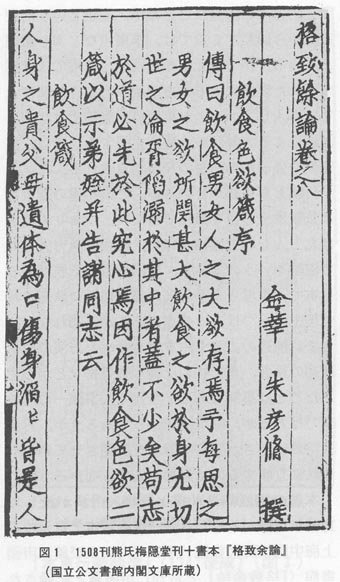 格致餘論卷之八
金華 朱彦脩 撰
飲食色欲箴序
傳曰飲食男女人之大欲存焉予每思之
男女之欲所関甚大飲食之欲於身尤切
世之淪胥陷溺於其中者蓋不少矣苟志
於道必先於此究心焉因作飲食色欲二
箴以示弟姪并告諸同志云
飲食箴
人身之貴父母遺体為口傷身滔〻皆是人
図1 1508刊熊氏梅隠堂刊十書本『格致余論』
(国立公文書館内閣文庫所蔵)